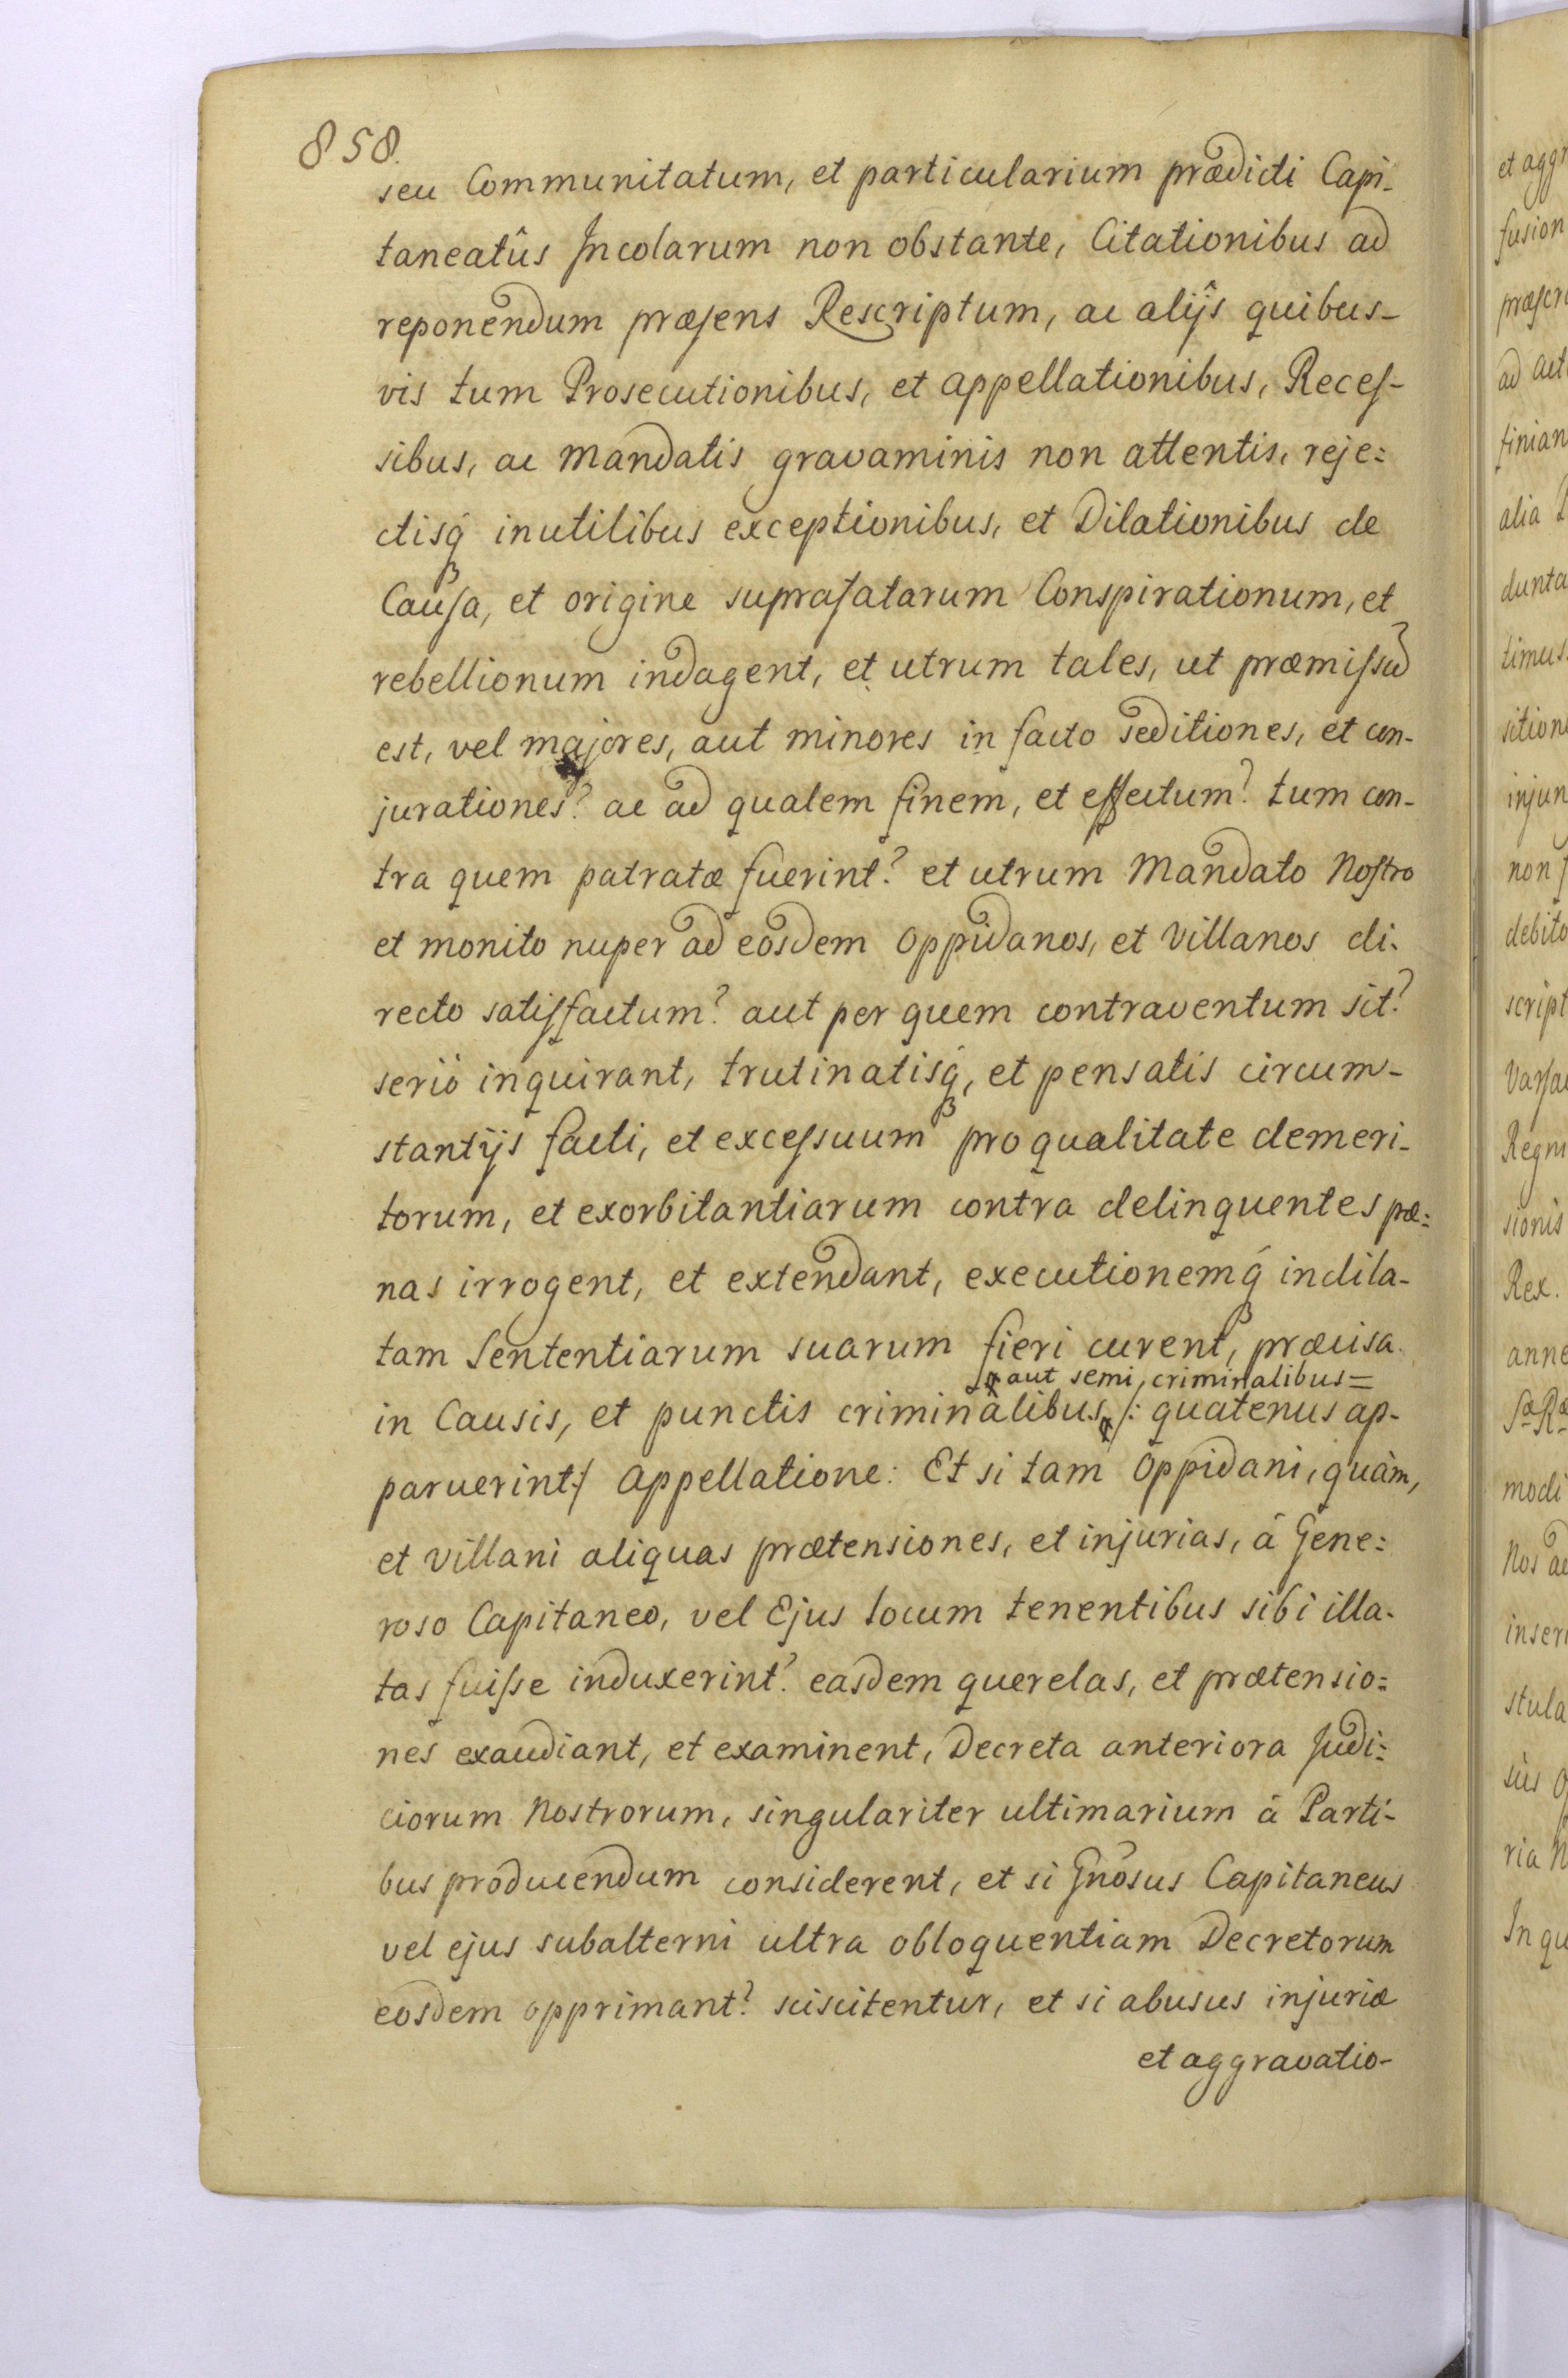 858.
seu Communitatum, et particularium prædicti Capi-
taneatûs Incolarum non obstante, Citationibus ad
reponendum præsens Rescriptum, ac alijs quibus-
vis tum Prosecutionibus, et appellationibus, Reces-
sibus, ac mandatis gravaminis non attentis, reje:
ctisq́ inutilibus exceptionibus, et Dilationibus de
Causa, et origine suprafatarum Conspirationum, et
rebellionum indagent, et utrum tales, ut præmissũ
est, vel majores, aut minores in facto seditiones, et con-
jurationes? ac ad qualem finem, et effectum? tum con-
tra quem patratæ fuerint? et utrum Mandato Nostro
et monito nuper ad eosdem Oppidanos, et Villanos di-
recto satisfactum? aut per quem contraventum sit?
seriò inquirant, trutinatisq́, et pensatis circum-
stantijs facti, et excessuum pro qualitate demeri-
torum, et exorbitantiarum contra delinquentes pæ:
nas irrogent, et extendant, executionemq́ indila-
tam Sententiarum suarum fieri curent, præcisa
aut semi criminalibus=
in Causis, et punctis criminalibus /: quatenus ap-
paruerint:/ Appellatione: Et si tam Oppidani, quàm,
et villani aliquas prætensiones, et injurias, á Gene:
roso Capitaneo, vel Ejus locum tenentibus sibi illa-
tas fuisse induxerint? easdem querelas, et prætensio:
nes exaudiant, et examinent, Decreta anteriora Judi:
ciorum Nostrorum, singulariter ultimarium á Parti-
bus producendum considerent, et si Gnõsus Capitaneus
vel ejus subalterni ultra obloquentiam Decretorum
eosdem opprimant? sciscitentur, et si abusus injuriæ
et aggravatio-